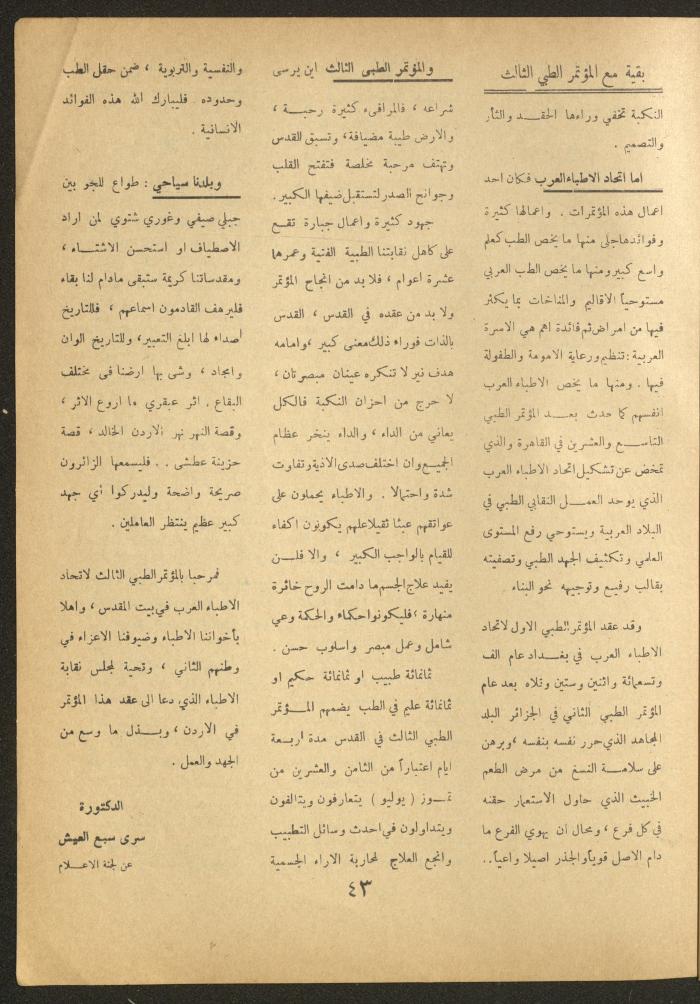 بقية مع المؤتمر الطبي الثالث
النكبة تخفي وراءها الحقــد والثأر
والتصميم .
اما اتحاد الاطباء العرب فكان احد
اعمال هذه المؤتمرات . واعمالها كثيرة
وفوائدها جلى منها ما يخص الطب كعلم
واسع كبير ومنها ما يخص الطب العربي
مستوحياً الاقاليم والمناخات بما يكثر
فيها من امراض ثم فائدة اهم هي الاسرة
العربية : تنظيم ورعاية الامومة والطفولة
فيها . ومنها ما يخص الاطباء العرب
انفسهم كما حدث بعــد المؤتمر الطبي
التاســع والعشرين في القاهرة والذي
تمخض عن تشكيل اتحاد الاطباء العرب
الذي يوحد العمــل النقابي الطبي في
البلاد العربية ويستوحي رفع المستوى
العلمي وتكثيف الجهد الطبي وتصفيته
بقالب رفيــع وتوجيهه نحو البناء
وقد عقد المؤتمر الطبي الاول لاتحاد
الاطباء العرب في بغــداد عام الف
وتسعمائة واثنين وستين وتلاه بعد عام
المؤتمر الطبي الثاني في الجزائر البلد
المجاهد الذي حرر نفسه بنفسه ، وبرهن
على سلامــة النسغ من مرض الطعم
الخبيث الذي حاول الاستعمار حقنه
في كل فرع ، ومحال ان يهوي الفرع ما
دام الاصل قوياً والجذر اصيلا واعياً..
والمؤتمر الطبي الثالث اين يرسى
شراعه ، فالمرافىء كثيرة رحبــة ،
والارض طيبة مضيافة ، وتسبق القدس
وتهتف مرحبة مخلصة فتفتح القلب
وجوانح الصدر لتستقبل ضيفها الكبير.
جهود كثيرة واعمال جبارة تقــع
على كاهل نقابتنا الطبية الفنية وعمرها
عشرة اعوام ، فلا بد من انجاح المؤتمر
ولا بد من عقده في القدس ، القدس
بالذات فوراء ذلك معنى كبير ، وامامه
هدف نير لا تنكره عينان مبصرتان ،
لا حرج من احزان النكبة فالكل
يعاني من الداء ، والداء ينخر عظام
الجميــع وان اختلف صدى الاذية وتفاوت
شدة واحتمالا . والاطباء يحملون على
عواتقهم عبئا ثقيلا علهم يكونون اكفاء
للقيام بالواجب الكبير ، والا فلــن
يفيد علاج الجسم ما دامت الروح خائرة
منهارة ؛ فليكونوا حكماء والحكمة وعي
شامل وعمل مبصر واسلوب حسن .
ثمانمائة طبيب او ثمانمائة حكيم او
ثمانمائة عليم في الطب يضمهم المــؤتمر
الطبي الثالث في القدس مدة اربــعة
ايام اعتباراً من الثامن والعشرين من
تمــوز ( يوليو ) يتعارفون ويتالفون
ويتداولون في احدث وسائل التطبيب
وانجع العلاج لمحاربة الاراء الجسمية
والنفسية والتربوية ، ضمن حقل الطب
وحدوده . فليبارك الله هذه الفوائد
الانسانية .
وبلدنا سياحي : طواع للجو بين
جبلي صيفي وغوري شتوي لمن اراد
الاصطياف او استحسن الاشتــاء ،
ومقدساتنا كريمة ستبقى مادام لنا بقاء
فليرهف القادمون اسماعهم ، فللتاريخ
أصداء لها ابلغ التعبير ، وللتاريخ الوان
وامجاد ، وشي بها ارضنا في مختلف
البقاع . اثر عبقري ما اروع الاثر ،
وقصة النهر نهر الاردن الخالد ، قصة
حزينة عطشى . . فليسمعها الزائرون
صريحة واضحة وليدركوا أي جهد
كبير عظيم ينتظر العاملين .
فمرحبا بالمؤتمر الطبي الثالث لاتحاد
الاطباء العرب في بيت المقدس ، واهلا
بأخواننا الاطباء وضيوفنا الاعزاء في
وطنهم الثاني ، وتحية لمجلس نقابة
الاطباء الذي دعا الى عقد هذا المؤتمر
في الاردن ، وبــذل ما وسع من
الجهد والعمل .
الدكتورة
سرى سبع العيش
عن لجنة الاعــلام
٤٣